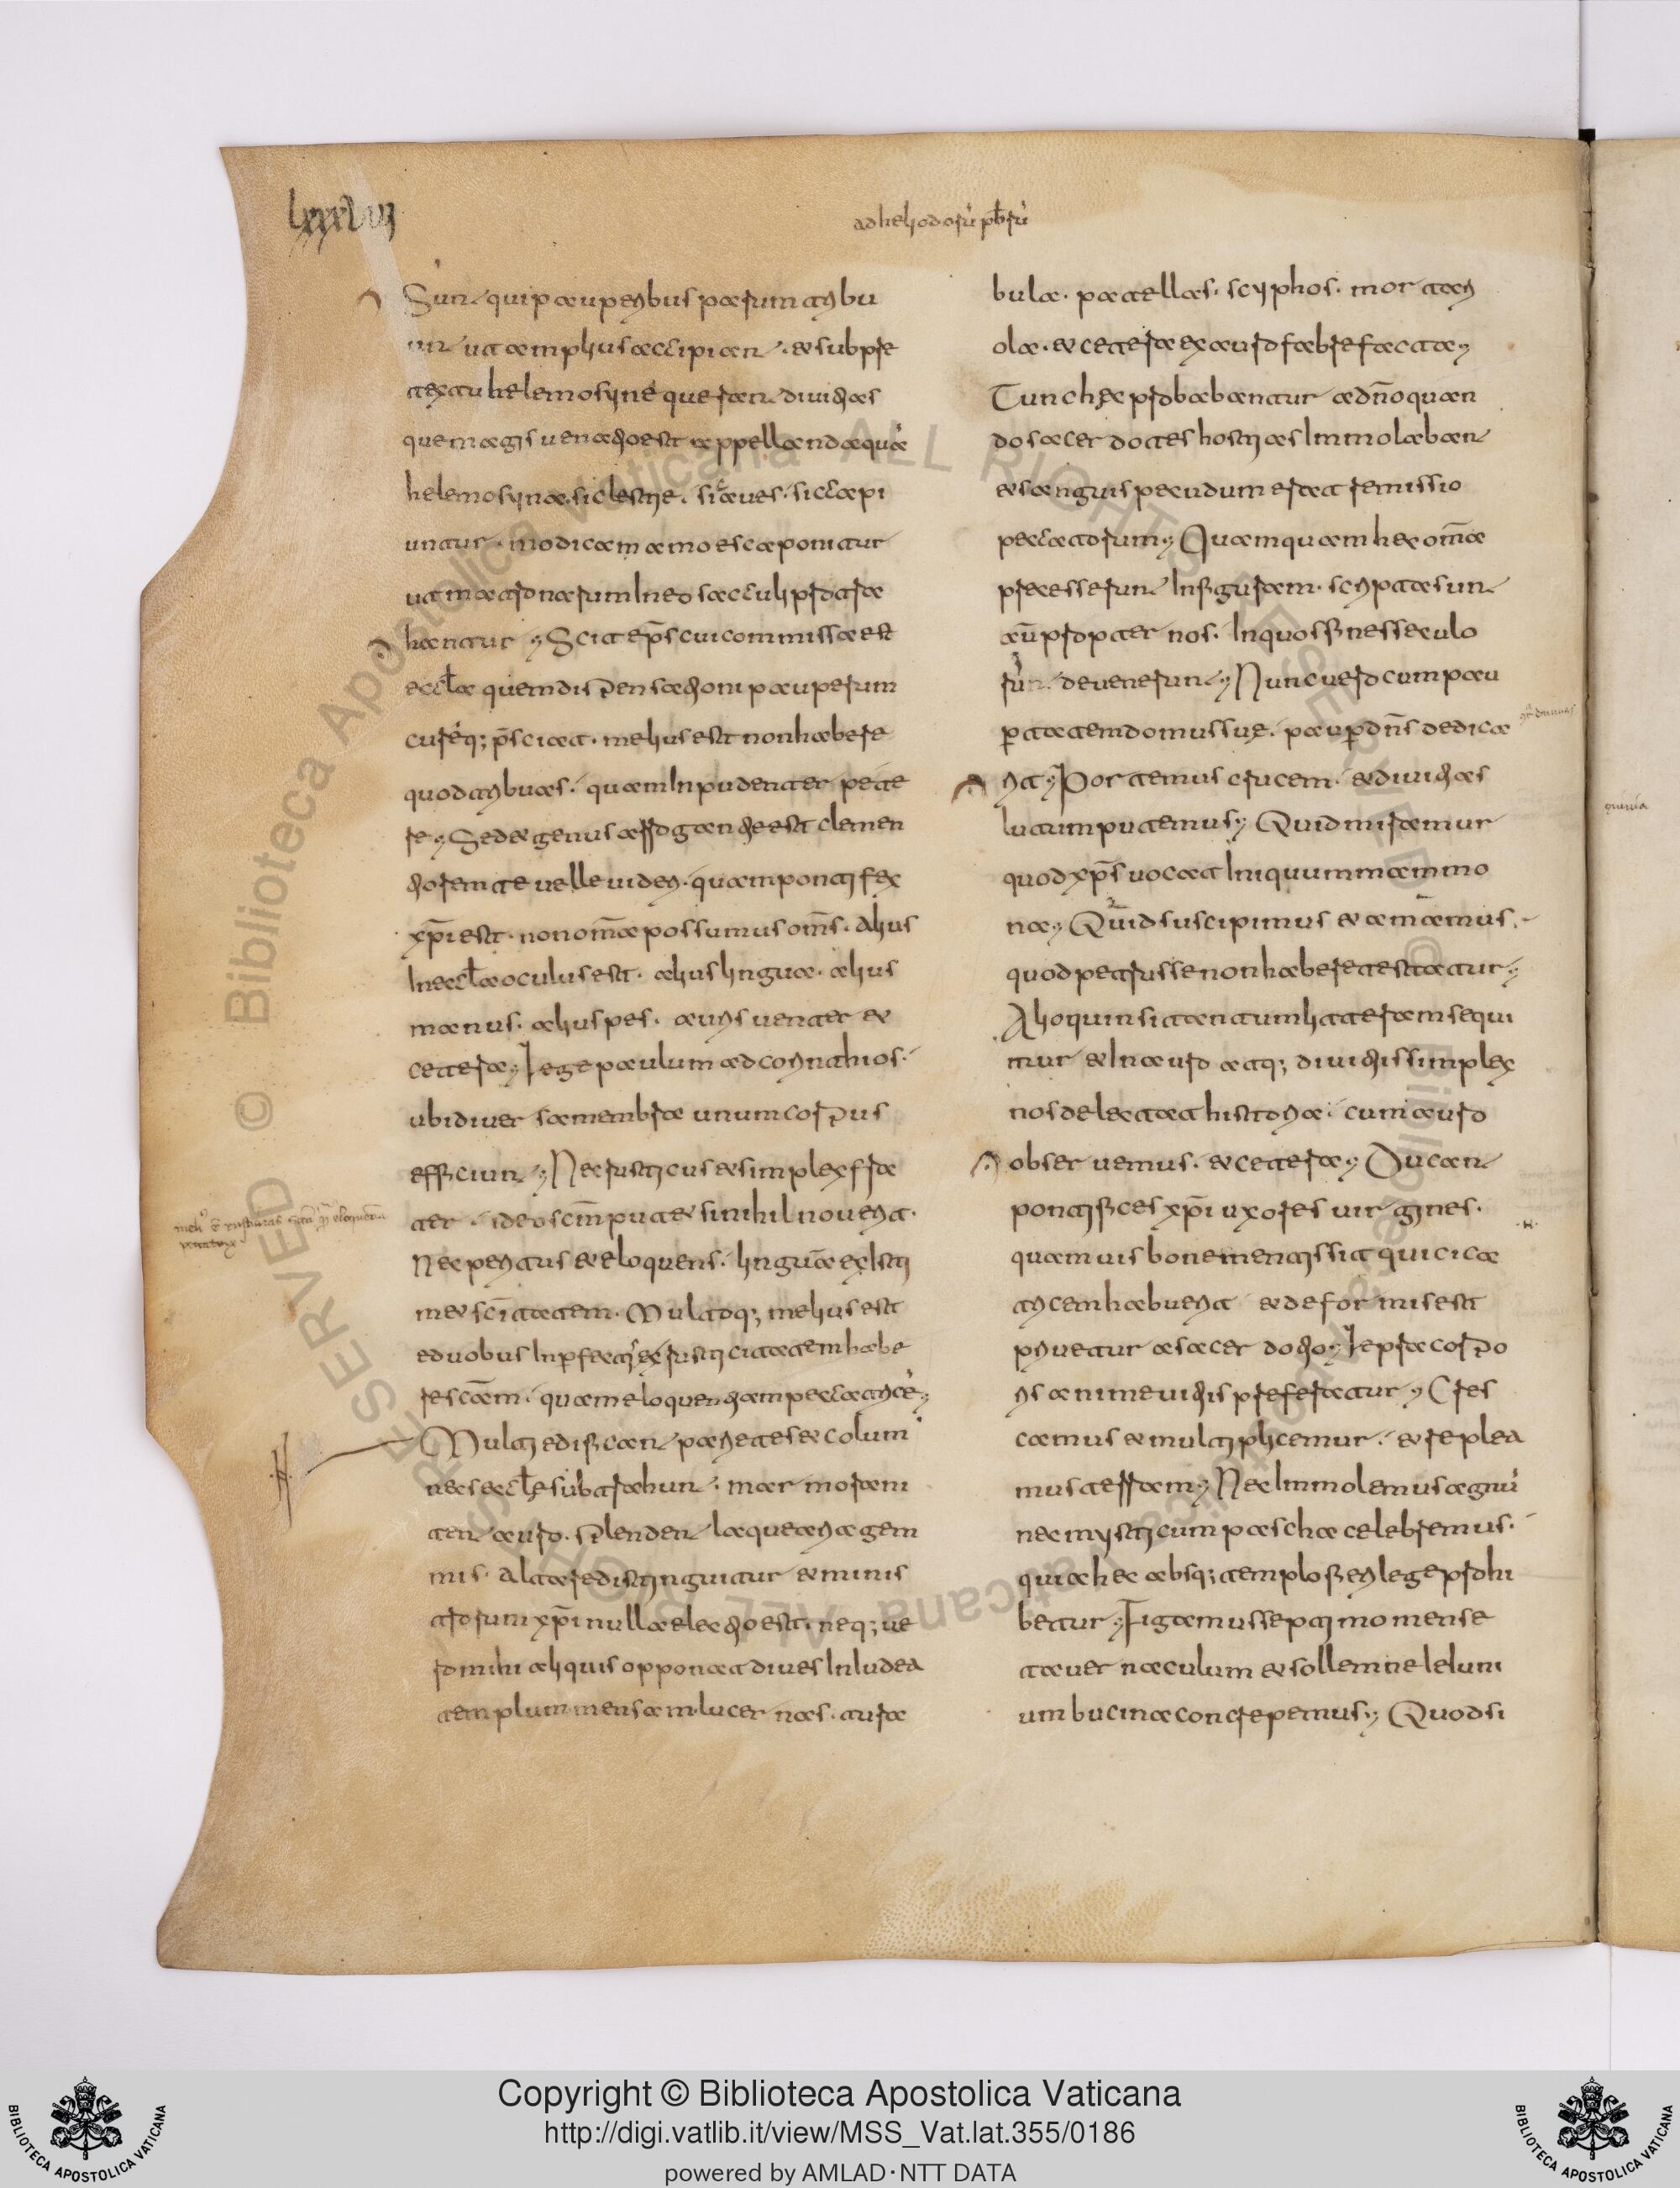 lxxxvij
ad heliodorū pb̄rū
Sunt qui pauperibus parum tribu
unt ut amplius accipiant. et sub pre
textu helemosyne querant divitias
que magis venatio est appellanda quā
helemosyna. sic bestię. sic aves. sic capi
untur. modica in amo esca ponitur
ut matronarum in eo sacculi protra
hantur. Scit ep̄s cui commissa est
eccl̄a quem dispensationi pauperum
cureq; p̄ficiat. melius est non habere
quod tribuas. quam inpudenter pete
re. Sed et genus arrogantie est clemen
tiorem te velle videri. quam pontifex
xp̄i est. non om̄a possumus om̄s. alius
in eccl̄a oculus est. alius lingua. alius
manus. alius pes. auris venter et
cetera. Lege paulum ad corinthios.
ubi diversa membra unum corpus
efficiunt. Nec rusticus et simplex fra
ter. ideo se sc̄m putet si nihil noverit.
Nec peritus et eloquens. lingua exísti
met sc̄itatem. Multoq; melius est
e duobus inperfectis rusticitatem habe
re sc̄am. quam eloquentiam peccatricē.
Multi edificant parietes et colum
nas eccl̄ę subtrahunt. marmora ni
tent auro. splendent laquearia gem
mis. altare distinguitur et minis
trorum xp̄i nulla electio est. neq; ve
ro mihi aliquis opponat dives in iudea
templum mensam lucernas. turi
bula. patellas. scyphos. mortari
ola. et cetera ex auro fabrefacta.
Tunc hęc probabantur a dn̄o quan
do sacerdotes hostias immolabant
et sanguis pecudum erat remissio
peccatorum. Quamquam hec om̄a
precesserunt in figuram. scripta sunt
aū propter nos. in quos fines seculo
rū devenerunt. Nunc vero cum pau
pertatem domus suę. pauper dn̄s dedica
rit. Portemus crucem. et divitias
lutum putemus. Quid miramur
quod xp̄s vocat iniquum mammo
na. Quid suscipimus et amamus.
quod petrus se non habere testatur.
Alioquin si tantum litteram sequi
mur et in auro atq; divitiis simplex
nos delectat historia. cum auro
observemus. et cetera. Ducant
pontifices xp̄i uxores virgines.
quamvis bone mentis sit qui cica
tricem habuerit et deformis est
privetur a sacerdotio. Lepra corpo
ris anime vitiis preferatur. Cres
camus et multiplicemur. et replea
mus terram. Nec immolemus agnū
nec mysticum pascha celebremus.
quia hec absq; templo fieri lege prohi
betur. Figamus septimo mense
tabernaculum et sollemne ieiuni
um bucina concrepemus. Quod si